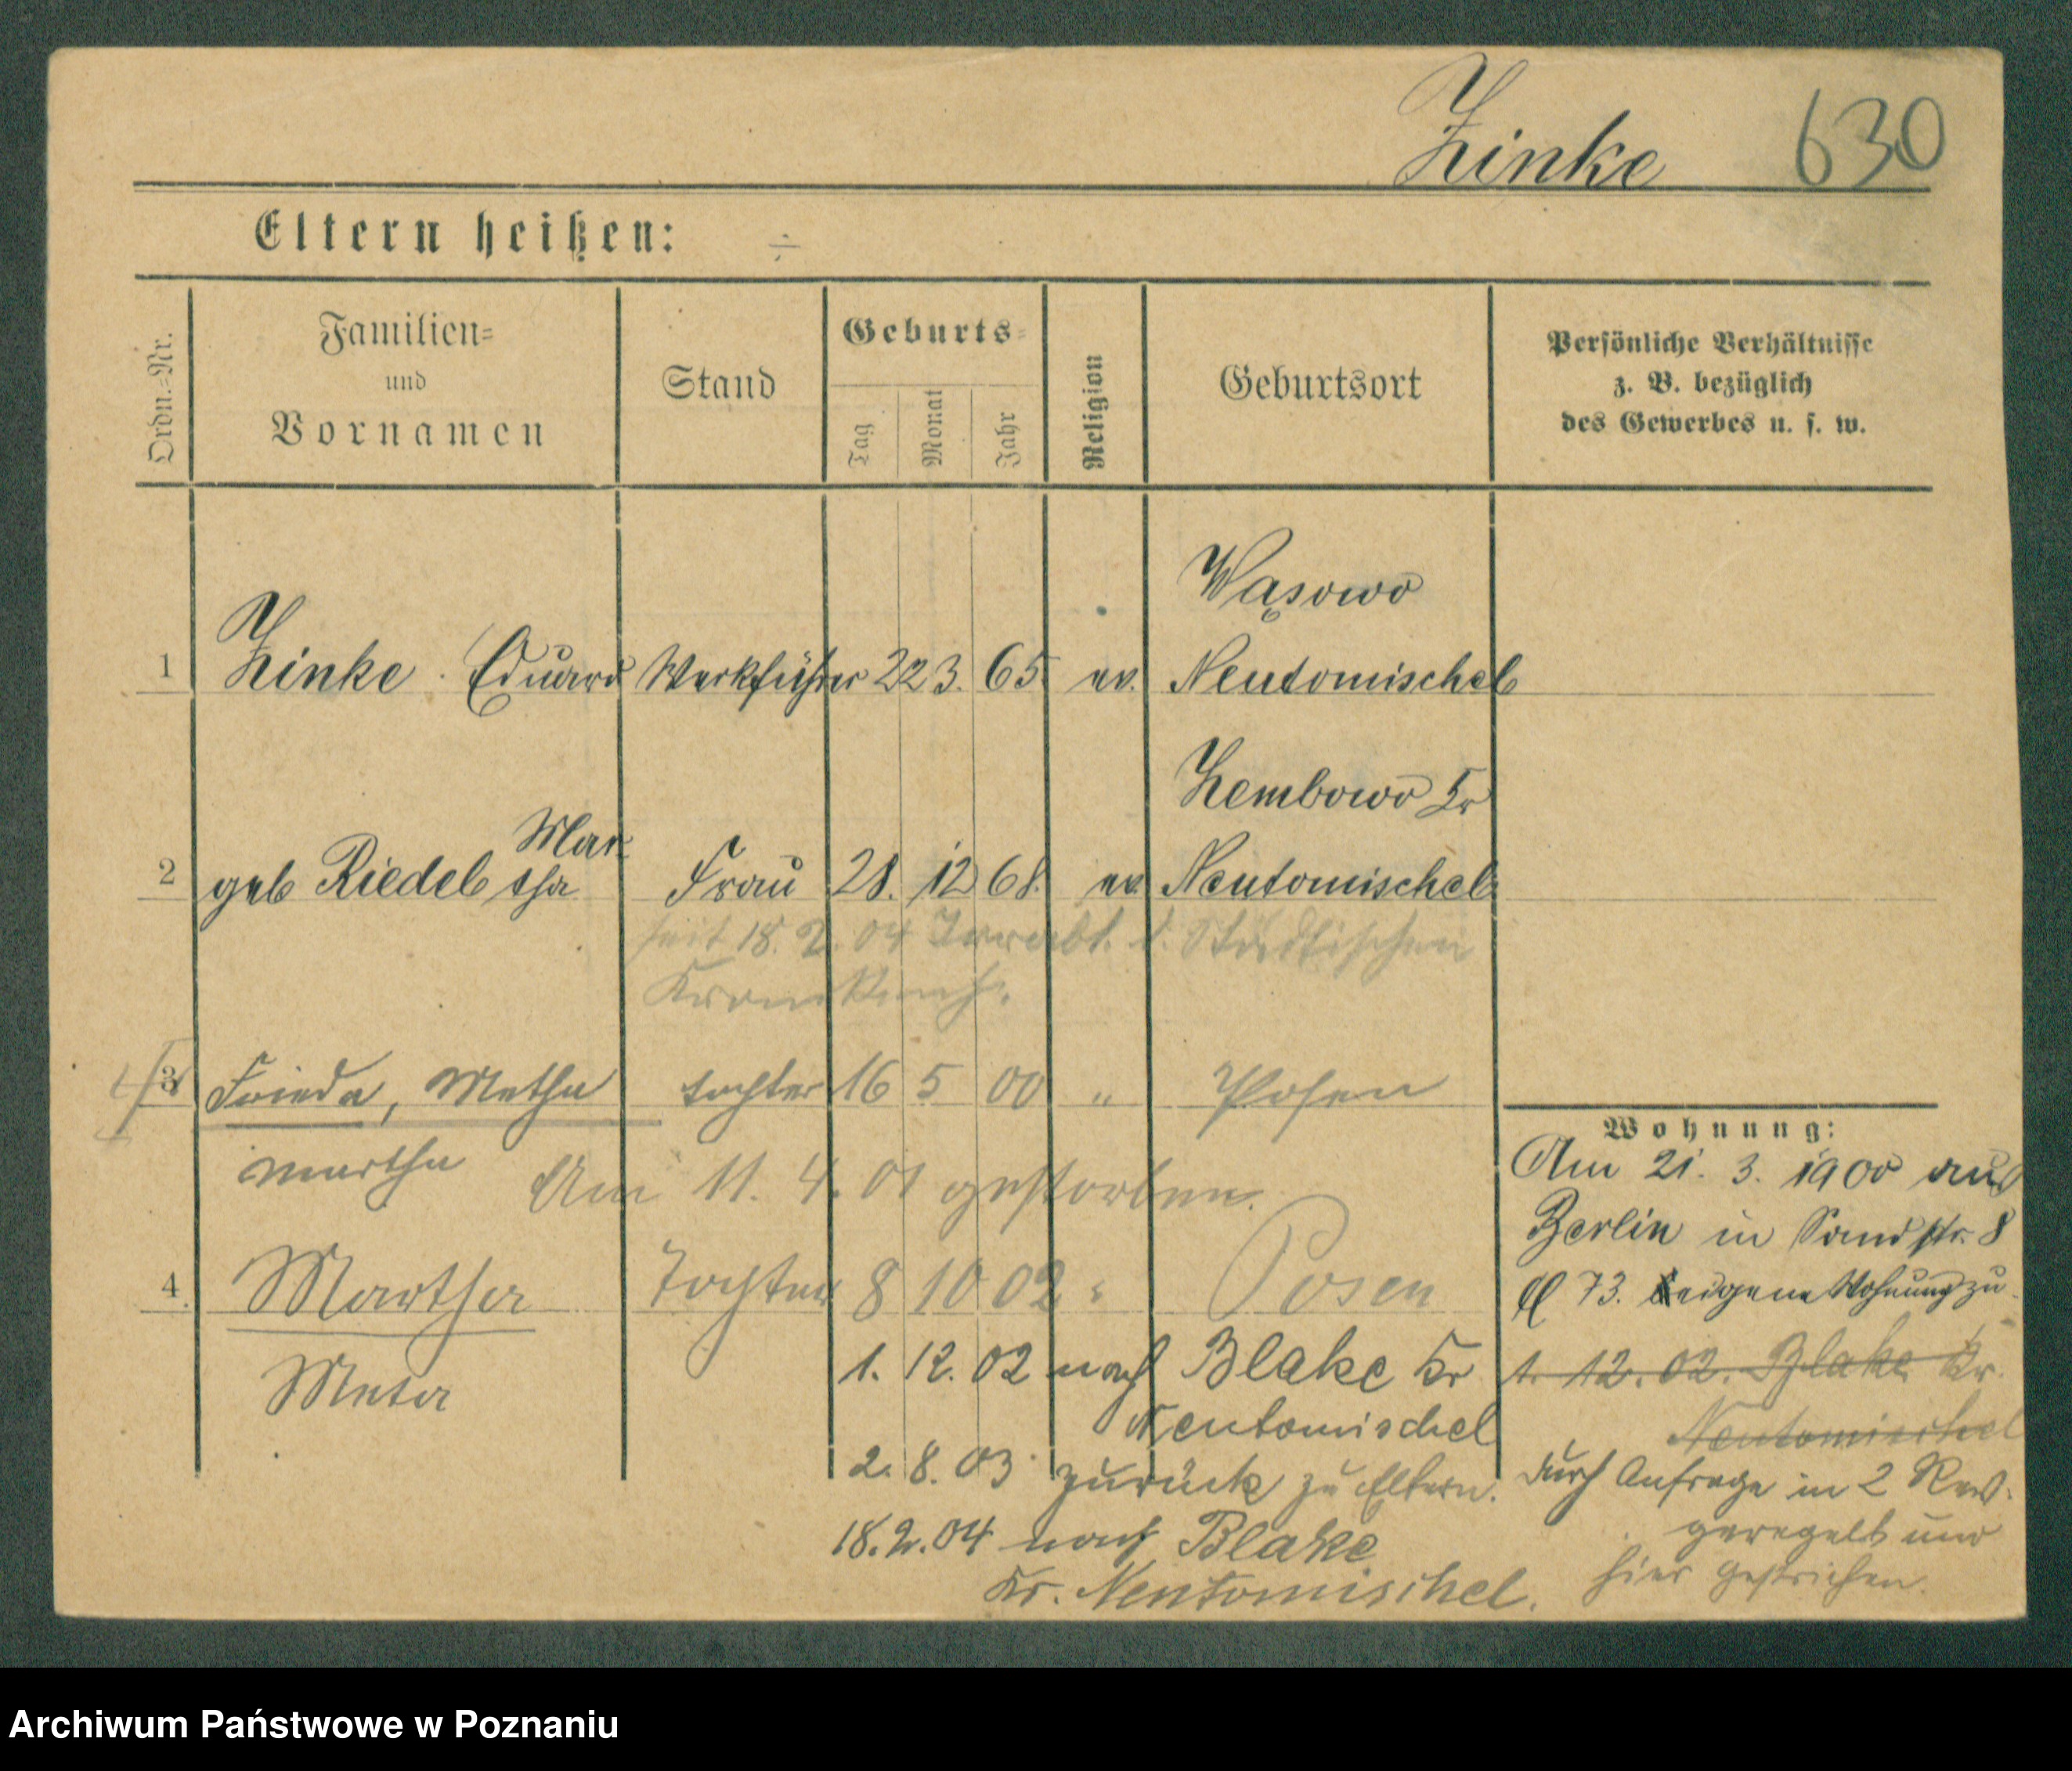 Zinke 630
Eltern heißen: ÷
Ordn.-Nr. Familien= und Vornamen Stand Geburts= Tag Monat Jahr Religion Geburtsort Persönliche Verhältnisse z. B. bezüglich des Gewerbes u. s. w.
Wąsowo
1 Zinke Eduard Werkführer 22 3. 65 ev. Neutomischel
Zembowo Kr
Mar-
2 geb Riedel tha Frau 28. 12 68. ev Neutomischel
seit 18. 2. 04 Irrenabt. d. Städtischen
Krankenh.
3 Frieda, Metha Tochter 16 5 00 " Posen
Martha
Am 11. 4. 01 gestorben.
4. Martha Tochter 8 10 02 " Posen
Meta
1. 12. 02 nach Blake Kr
Neutomischel
2. 8. 03 zurück zu Eltern.
18. 2. 04 nach Blake
Kr. Neutomischel.
Wohnung:
Am 21. 3. 1900 aus
Berlin in Sandstr. 8
73. eigene Wohnung zu
1. 12. 02. Blake Kr.
Neutomischel
durch Anfrage in 2 Rev.
geregelt und
hier gestrichen.
Archiwum Państwowe w Poznaniu